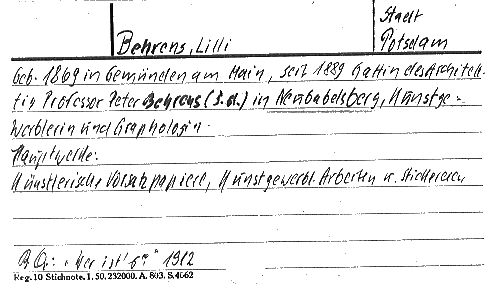 Stadt
Behrens, Lilli Potsdam
Geb. 1869 in Gemünden am Main, seit 1889 Gattin des Architek-
ten Professor Peter Behrens (s.d.) in Neubabelsberg, Kunstge-
werblerin und Graphologin.
Hauptwerke:
Künstlerische Vorsatzpapiere, Kunstgewerbl. Arbeiten u. Stickereien
"Wer ist's" 1912
Reg. 10 Stichnote. 1. 50. 232000. A. 803. S. 4062